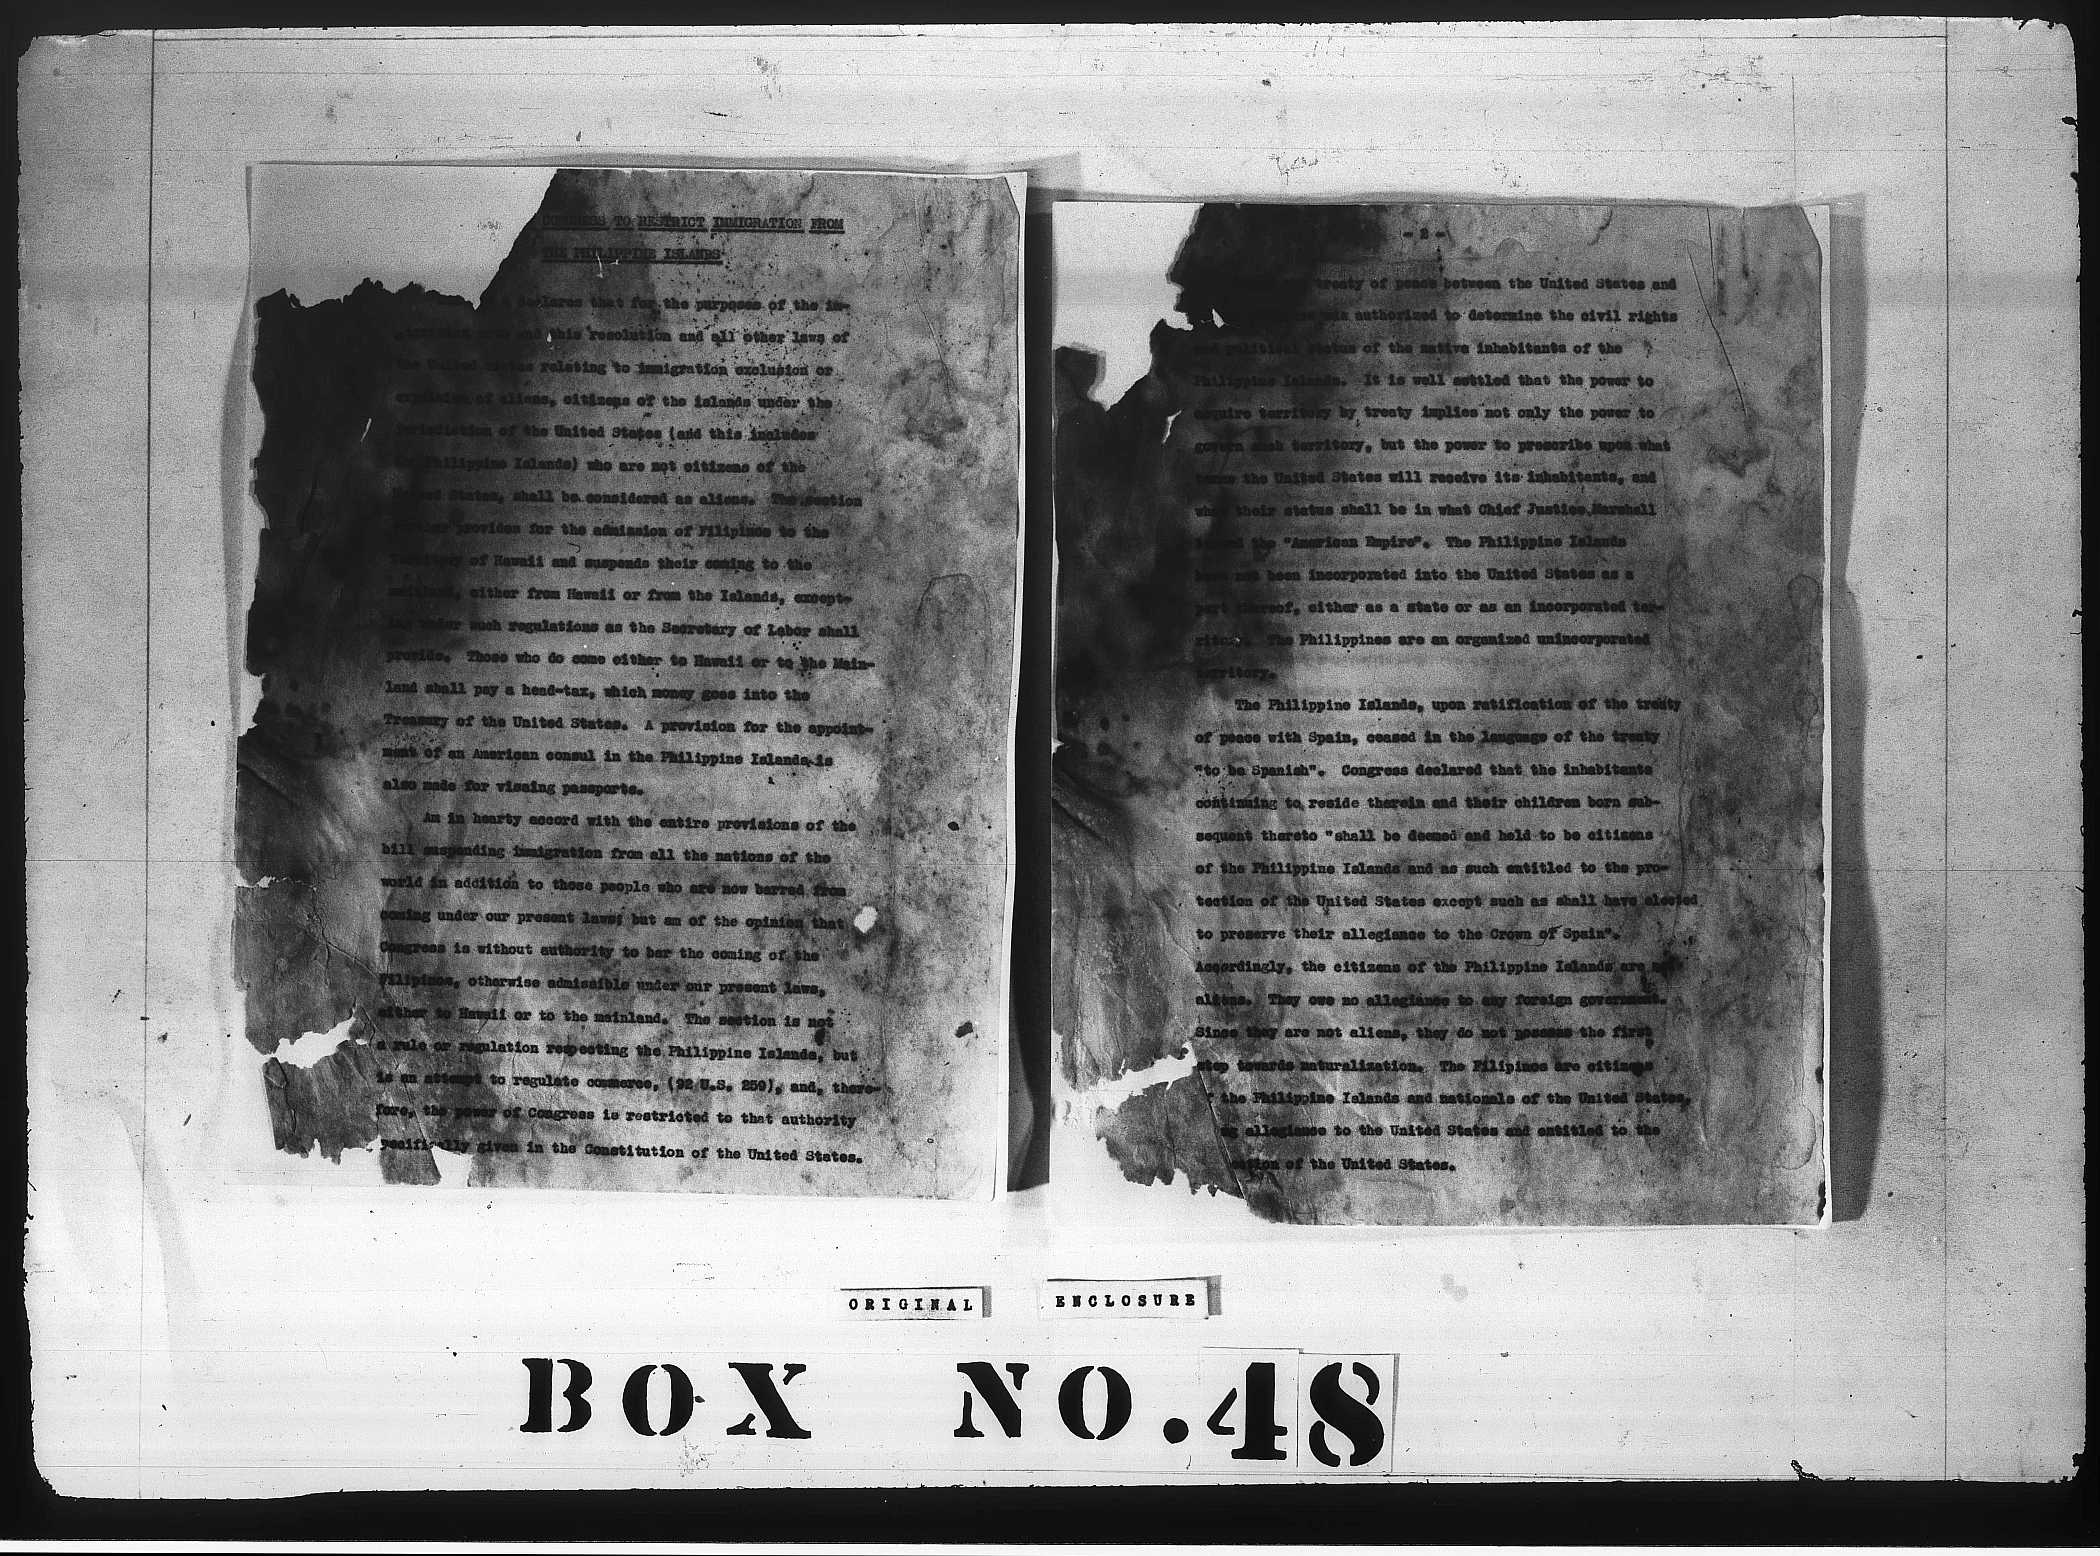 CONGRESS TO RESTRICT IMMIGRATION FROM
THE PHILIPPINE ISLANDS
declares that for the purposes of the im-
and this resolution and all other laws of
the United States relating to immigration exclusion or
expulsion of aliens, citizens of the islands under the
jurisdiction of the United States (and this includes
Philippine Islands) who are not citizens of the
United States, shall be considered as aliens. The section
provides for the admission of Filipinos to the
Territory of Hawaii and suspends their coming to the
mainland, either from Hawaii or from the Islands, except-
under such regulations as the Secretary of Labor shall
provide. Those who do come either to Hawaii or to the Main-
land shall pay a head-tax, which money goes into the
Treasury of the United States. A provision for the appoint-
ment of an American consul in the Philippine Islands is
also made for visaing passports.
Am in hearty accord with the entire provisions of the
bill suspending immigration from all the nations of the
world in addition to those people who are now barred from
coming under our present laws; but am of the opinion that
Congress is without authority to bar the coming of the
Filipinos, otherwise admissible under our present laws,
either to Hawaii or to the mainland. The section is not
a rule or regulation respecting the Philippine Islands, but
is an attempt to regulate commerce, (92 U.S. 259), and, there-
fore, the power of Congress is restricted to that authority
pecifically given in the Constitution of the United States.
- 2 -
treaty of peace between the United States and
was authorized to determine the civil rights
and political status of the native inhabitants of the
Philippine Islands. It is well settled that the power to
acquire territory by treaty implies not only the power to
govern such territory, but the power to prescribe upon what
terms the United States will receive its inhabitants, and
what their status shall be in what Chief Justice Marshall
the "American Empire". The Philippine Islands
have not been incorporated into the United States as a
part thereof, either as a state or as an incorporated ter-
ritory. The Philippines are an organized unincorporated
territory.
The Philippine Islands, upon ratification of the treaty
of peace with Spain, ceased in the language of the treaty
"to be Spanish". Congress declared that the inhabitants
continuing to reside therein and their children born sub-
sequent thereto "shall be deemed and held to be citizens
of the Philippine Islands and as such entitled to the pro-
tection of the United States except such as shall have elected
to preserve their allegiance to the Crown of Spain".
Accordingly, the citizens of the Philippine Islands are not
aliens. They owe no allegiance to any foreign government.
Since they are not aliens, they do not possess the first
step towards naturalization. The Filipinos are citizens
f the Philippine Islands and nationals of the United States,
ng allegiance to the United States and entitled to the
ection of the United States.
ORIGINAL ENCLOSURE
BOX NO. 48